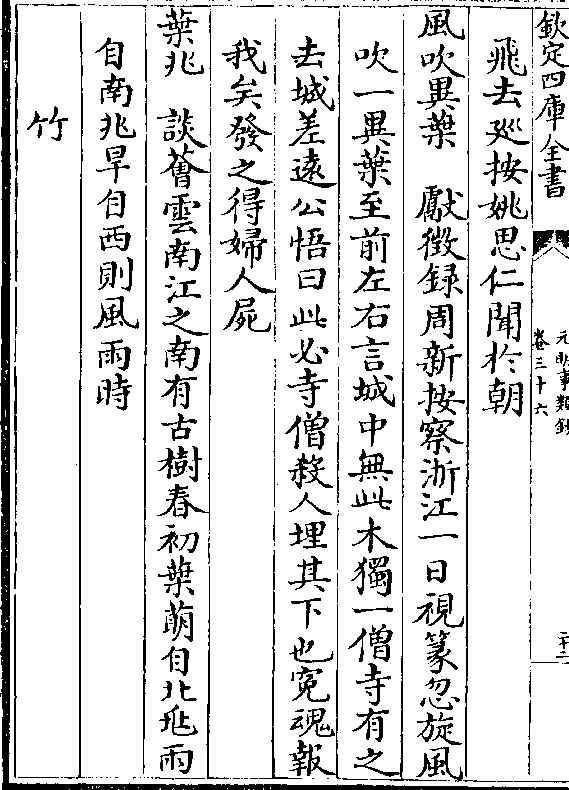 欽定四庫全書
元明事類鈔
卷三十六
二十二
飛去廵按姚思仁聞於朝
風吹異葉　獻徴録周新按察浙江一日視篆忽旋風
吹一異葉至前左右言城中無此木獨一僧寺有之
去城差遠公悟曰此必寺僧殺人埋其下也寃魂報
我矣發之得婦人屍
葉兆　談薈雲南江之南有古樹春初葉萌自北兆雨
自南兆旱自西則風雨時
竹